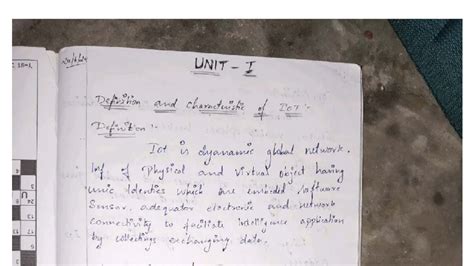 UNIT - I
Definition and Characteristic of IoT :-
Definition :-
Iot is dyanamic global network.
Inf of Physical and Virtual object having
unic identies which are imbeded software
Sensor, adequator electronic and network
connectivity to faciliate intelligence application
by collectings exchanging data.